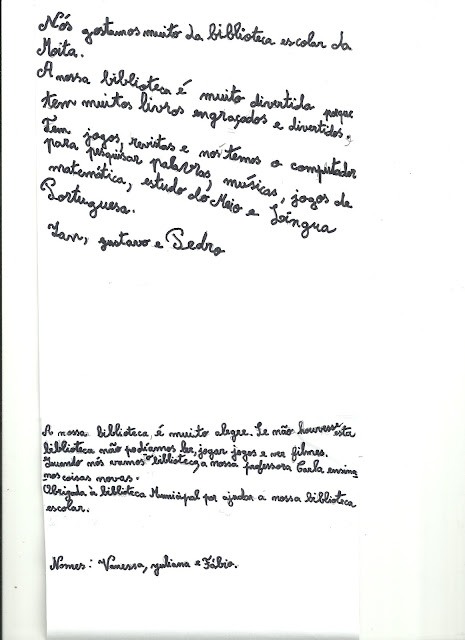 Nós gostamos muito da biblioteca escolar da
Moita.
A nossa biblioteca é muito divertida porque
tem muitos livros engraçados e divertidos.
Tem jogos, revistas e nós temos o computador
para pesquisar palavras, músicas, jogos de
matemática, estudo do Meio e Língua
Portuguesa.
gustavo e Pedro
A nossa biblioteca, é muito alegre. Se não houvesse esta
biblioteca não podíamos ler, jogar jogos e ver filmes.
Quando nós vamos à biblioteca, a nossa professora Carla ensina
nos coisas novas.
Obrigada à biblioteca Municipal por ajudar a nossa biblioteca
escolar.
Nomes: Vanessa, juliana e Fábio.